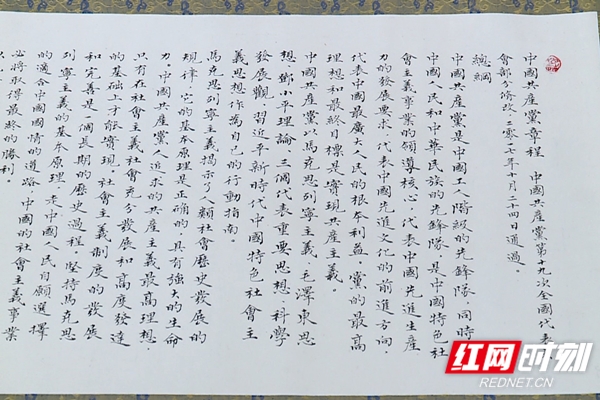 中國共產黨章程 中國共產黨第十九次全國代表
會部分修改,二〇一七年十月二十四日通過。
總綱
中國共產黨是中國工人階級的先鋒隊,同時
中國人民和中華民族的先鋒隊,是中國特色社
會主義事業的領導核心,代表中國先進生產
力的發展要求,代表中國先進文化的前進方向,
代表中國最廣大人民的根本利益。黨的最高
理想和最終目標是實現共產主義。
中國共產黨以馬克思列寧主義、毛澤東思
想、鄧小平理論、三個代表重要思想、科學
發展觀、習近平新時代中國特色社會主
義思想作為自己的行動指南。
馬克思列寧主義揭示了人類社會歷史發展的
規律,它的基本原理是正確的,具有強大的生命
力。中國共產黨人追求的共產主義最高理想,
只有在社會主義社會充分發展和高度發達
的基礎上才能實現。社會主義制度的發展
和完善是一個長期的歷史過程。堅持馬克思
列寧主義的基本原理,走中國人民自願選擇
的適合中國國情的道路,中國的社會主義事業
必將取得最終的勝利。
红网时刻
REDNET.CN